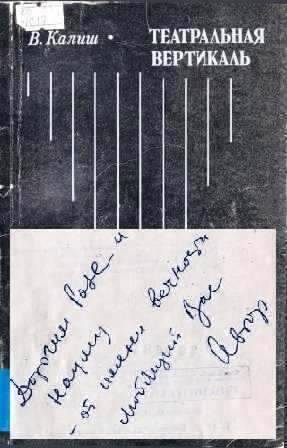 В. Калиш •
ТЕАТРАЛЬНАЯ
ВЕРТИКАЛЬ
Дорогим Розе и
Науму
- от имени вечности
любящий Вас
Автор